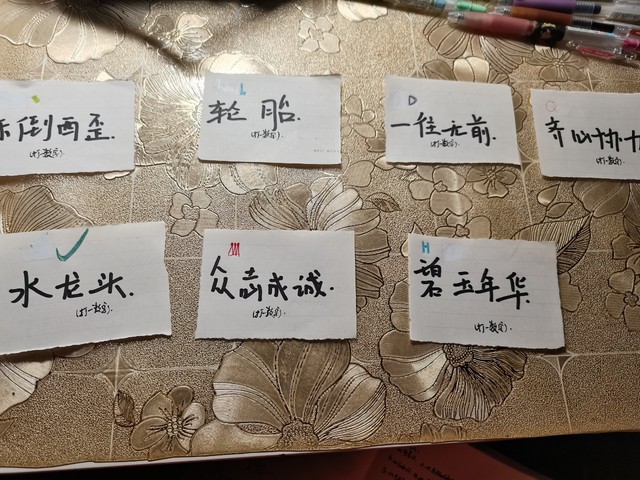 东倒西歪.
(打一数字).
L
轮胎.
(打一数字).
D
一往无前.
(打一数字).
齐心协力
(打一数字).
水龙头.
(打一数字).
众志成诚.
(打一数字).
H
碧玉年华.
(打一数字).